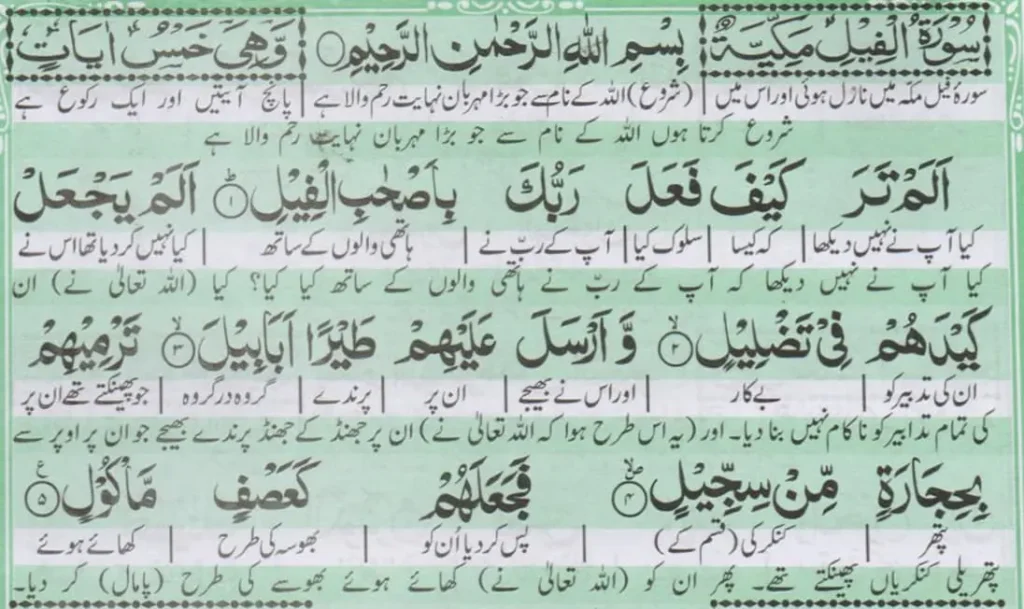 سُوْرَةُ الْفِيْلِ مَكِّيَّةٌ بِسْمِ اللّٰهِ الرَّحْمٰنِ الرَّحِيْمِ وَّهِىَ خَمْسُ اٰيَاتٍ
سورۂ فیل مکہ میں نازل ہوئی اور اس میں | (شروع) اللہ کے نام سے جو بڑا مہربان نہایت رحم والا ہے | پانچ آیتیں اور ایک رکوع ہے
شروع کرتا ہوں اللہ کے نام سے جو بڑا مہربان نہایت رحم والا ہے
اَلَمْ تَرَ كَيْفَ فَعَلَ رَبُّكَ بِاَصْحٰبِ الْفِيْلِ ۱ اَلَمْ يَجْعَلْ
کیا آپ نے نہیں دیکھا | کہ کیسا | سلوک کیا | آپ کے ربّ نے | ہاتھی والوں کے ساتھ | کیا نہیں کر دیا تھا اس نے
کیا آپ نے نہیں دیکھا کہ آپ کے ربّ نے ہاتھی والوں کے ساتھ کیا کیا؟ کیا (اللہ تعالیٰ نے) ان
كَيْدَهُمْ فِىْ تَضْلِيْلٍ ۲ وَّ اَرْسَلَ عَلَيْهِمْ طَيْرًا اَبَابِيْلَ ۳ تَرْمِيْهِمْ
ان کی تدبیر کو | بے کار | اور اس نے بھیجے | ان پر | پرندے | گروہ در گروہ | جو پھینکتے تھے ان پر
کی تمام تدابیر کو ناکام نہیں بنا دیا۔ اور (یہ اس طرح ہوا کہ اللہ تعالیٰ نے) ان پر جھنڈ کے جھنڈ پرندے بھیجے جو ان پر اوپر سے
بِحِجَارَةٍ مِّنْ سِجِّيْلٍ ۴ فَجَعَلَهُمْ كَعَصْفٍ مَّاْكُوْلٍ ۵
پتھر | کنکر کی (قسم کے) | پس کر دیا اُن کو | بھوسہ کی طرح | کھائے ہوئے
پتھریلی کنکریاں پھینکتے تھے۔ پھر ان کو (اللہ تعالیٰ نے) کھائے ہوئے بھوسے کی طرح (پامال) کر دیا۔